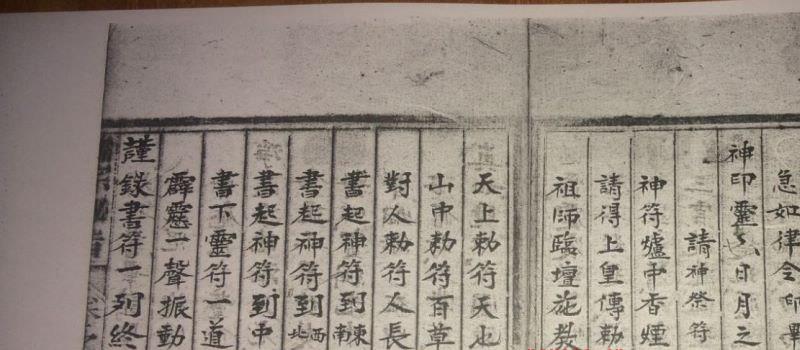 急如律令
神印靈〻日月之
請神祭符
神符爐中香煙
請得上皇傳勅
祖師臨壇施教
天上勅符天也
山中勅符百草
對人勅符人長
書起神符到東南
書起神符到西北
書起神符到中
書下靈符一道
霹靂一聲振動
謹錄書符一列終